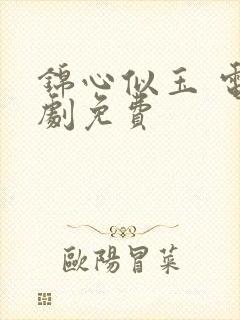 錦心似玉 電
劇免費
歐陽冒菜